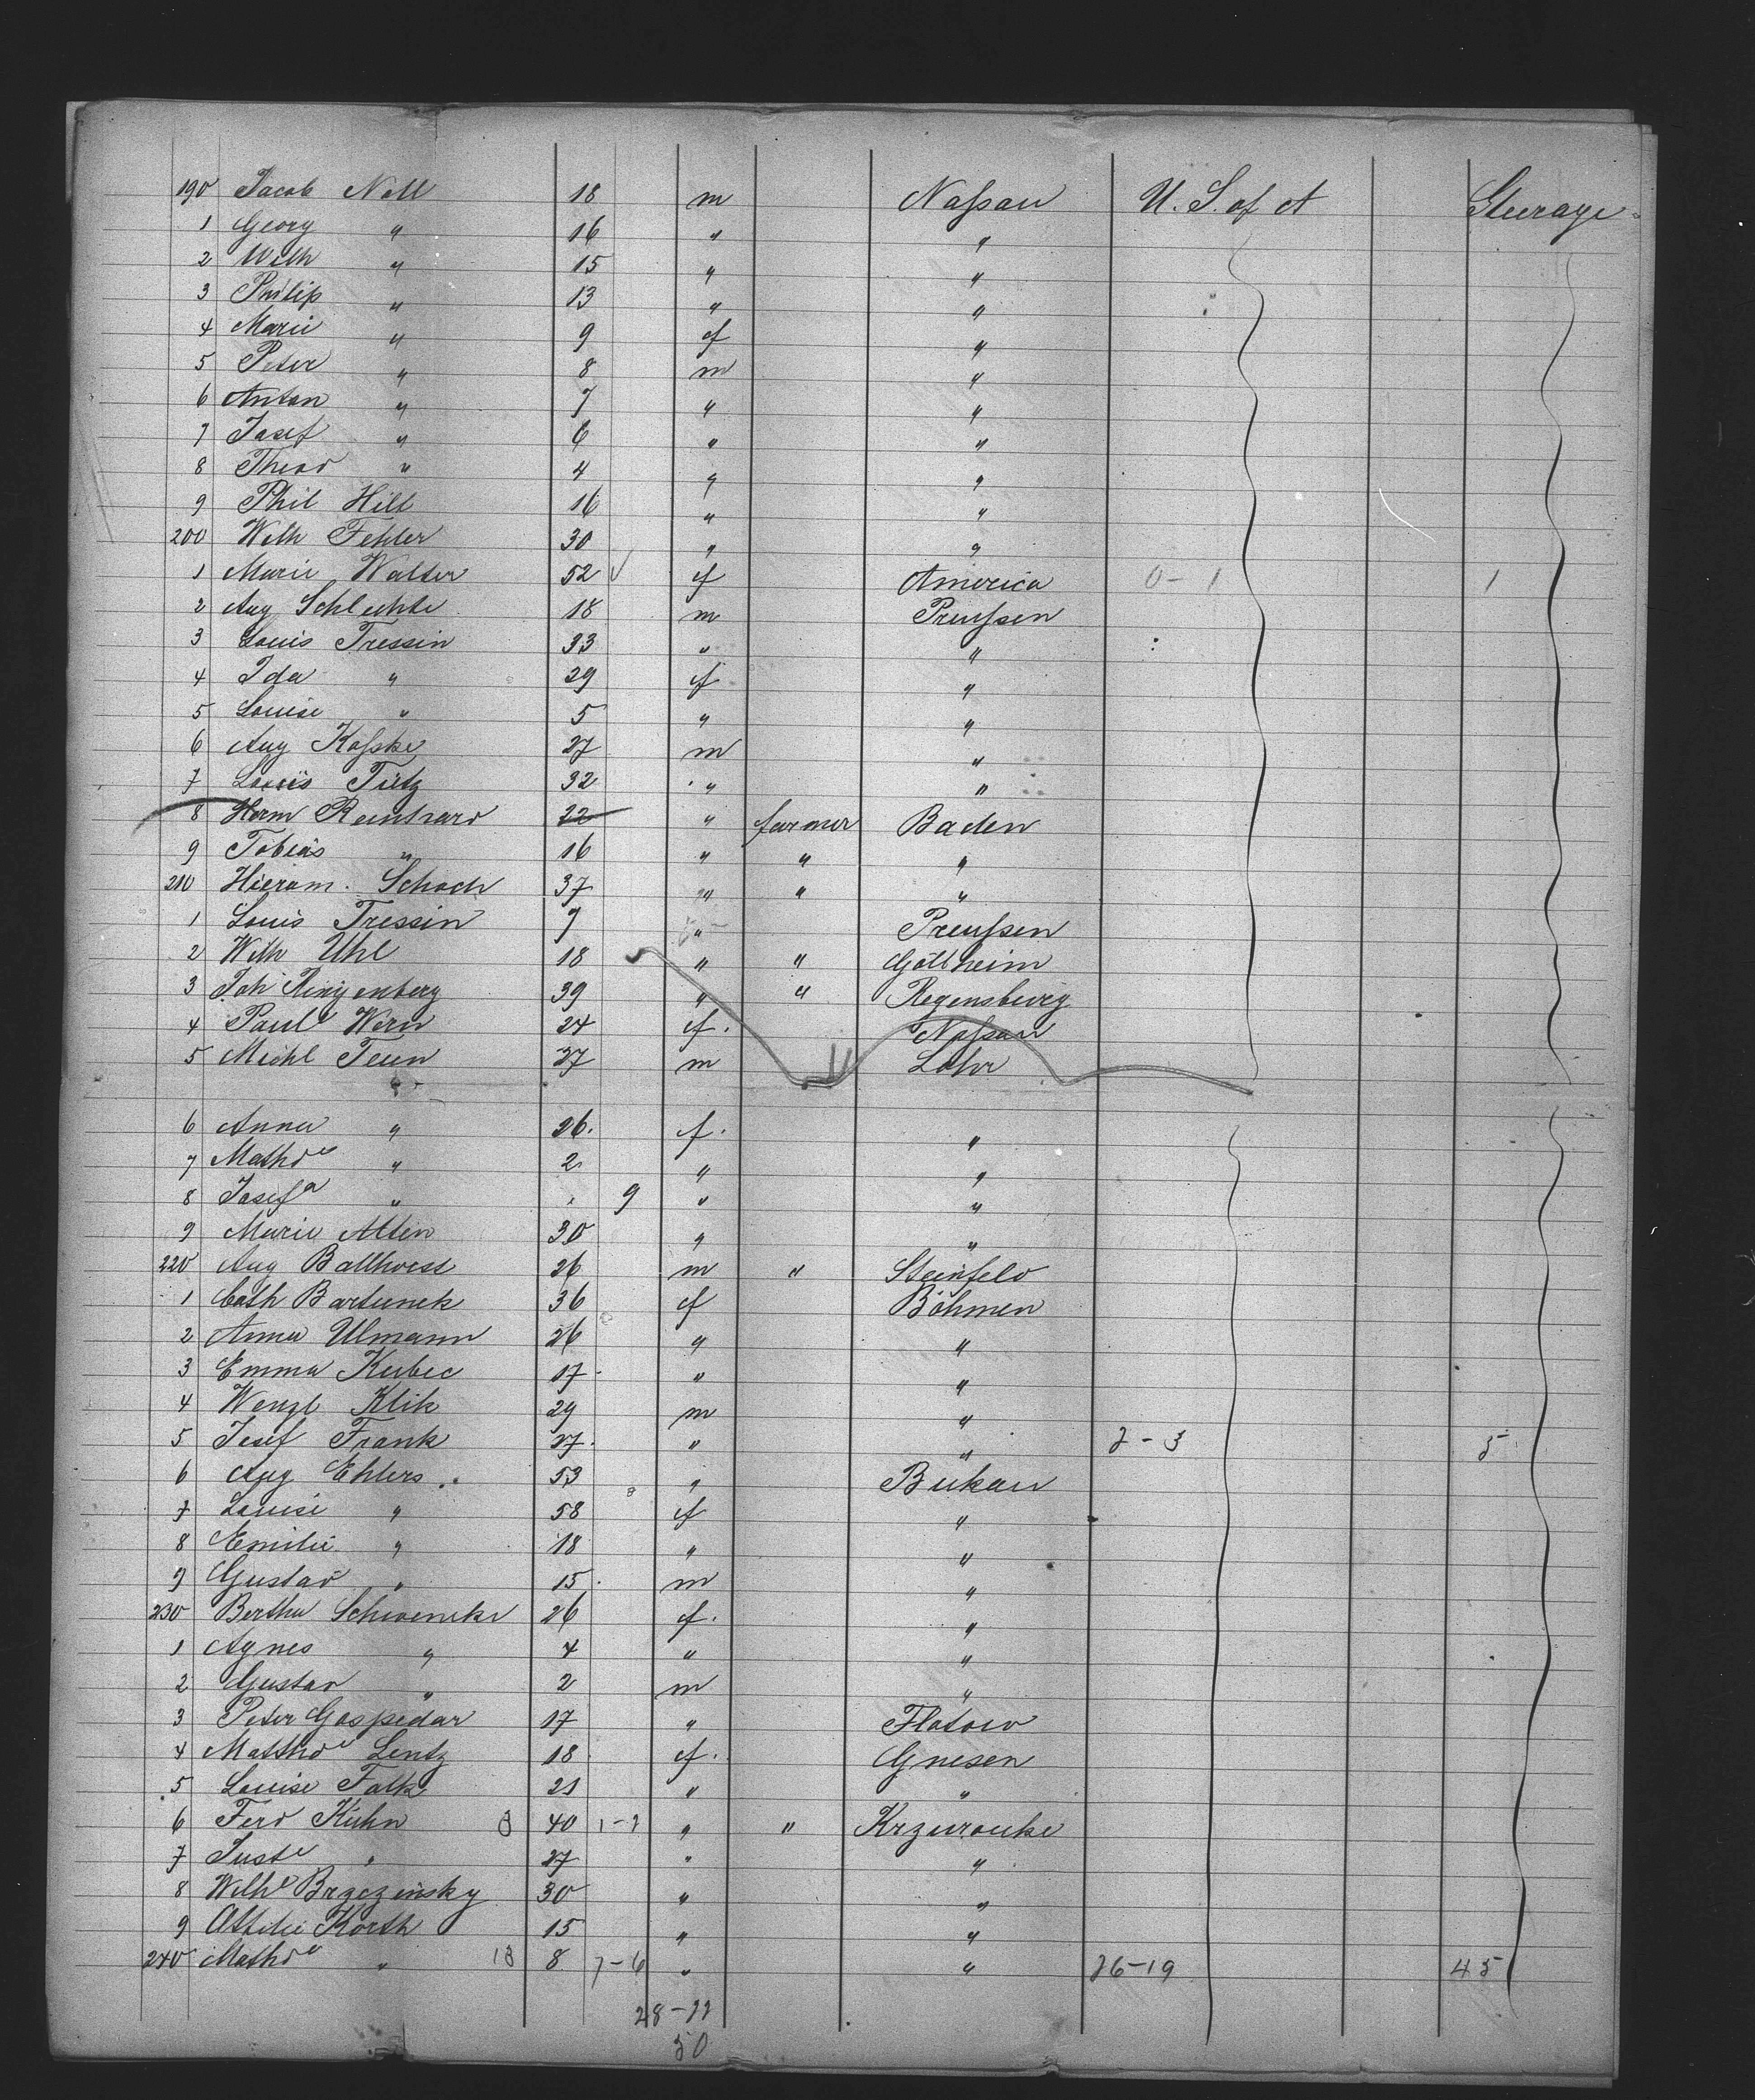 190 Jacob Noll 18 m Naſsau U. S. of A Steerage
1 Georg " 16 " "
2 Wilh " 15 " "
3 Philip " 13 " "
4 Marie " 9 f "
5 Peter " 8 m "
6 Anton " 7 " "
7 Josef " 6 " "
8 Theod " 4 " "
9 Phil Hill 16 " "
200 Wilh Fehler 30 " "
1 Marie Walter 52 f America 0-1 1
2 Aug Schlechte 18 m Preuſsen
3 Louis Tressin 33 " "
4 Ida " 29 f "
5 Louise " 5 " "
6 Aug Koſske 27 m "
7 Louis Tietz 32 " "
8 Herm Reinhard 22 " farmer Baden
9 Tobias " 16 " " "
210 Hieram. Schoch 37 " " "
1 Louis Tressin 7 " Preuſsen
2 Wilh Uhl 18 " " Göllheim
3 Joh Ringenberg 39 " " Regensburg
4 Paule Wern 24 f. Naſsau
5 Michl Teun 27 m Lohr
6 Anna " 26. f. "
7 Mathde " 2 " "
8 Josefa " 9 " "
9 Marie Alten 30 " "
220 Aug Ballhorst 26 m " Steinfeld
1 Cath Bartunek 36 f Böhmen
2 Anna Ulmann 26 " "
3 Emma Kubec 17 " "
4 Wenzl Klik 29 m "
5 Josef Frank 27. " " 2-3 5
6 Aug Ehlers 53 " Bukau
7 Louise " 58 f "
8 Emilie " 18 " "
9 Gustav " 15 m "
230 Bertha Schwencke 26 f. "
1 Agnes " 4 " "
2 Gustav " 2 m "
3 Peter Gospedar 17 " Flatow
4 Matthde Lentz 18 f. Gnesen
5 Louise Falk 21 " "
6 Ferd Kuhn 3 40 1-2 " "
7 Juste " 27 " "
8 Wilhe Brzezinsky 30 " "
9 Ottilie Korth 15 " "
240 Mathde " 13 8 7-6 " " 26-19 45
28-22
50